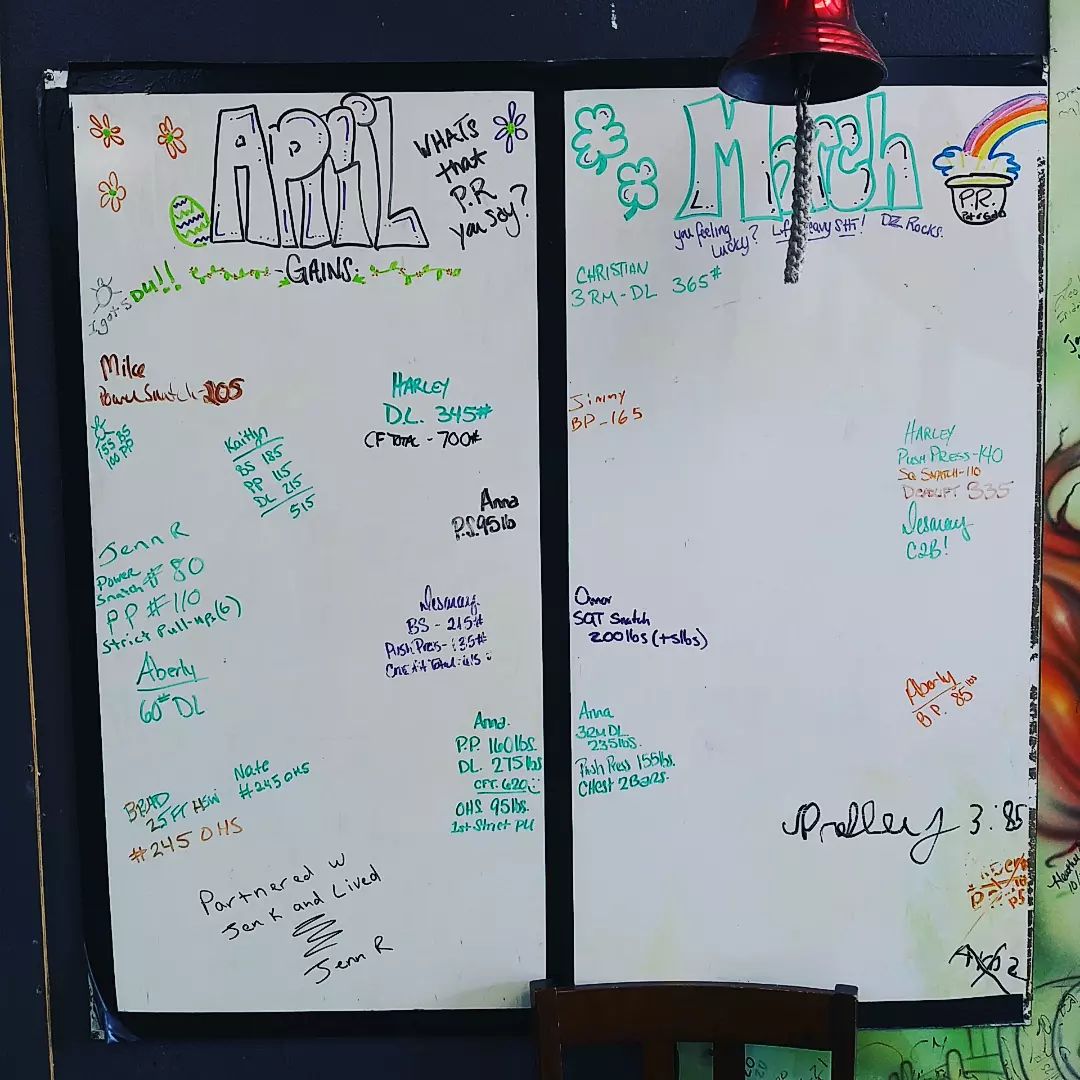 APRIL
WHATS
that
P.R
you say?
-GAINS-
I got 5 DU!!
Mike
Power Snatch-205
155 BS
100 PP
Kaitlyn
BS 185
PP 115
DL 215
515
HARLEY
D.L. 345#
CF TOTAL - 700#
Anna
P.S. 95lb
Jenn R
Power
Snatch # 80
PP # 110
Strict Pull-ups (6)
Desmay
BS - 215#
Push Press - 135#
Aberly
60# DL
Anna.
P.P. 160lbs.
DL. 275lbs
CFT. 620
OHS 95lbs.
1st Strict PU
BRAD
25 FT HSW
#245 OHS
Nate
#245 OHS
Partnered w
Jen K and Lived
Jenn R
March
P.R.
Pot o Gold
you feeling
Lucky? Lift Heavy Sh*t! DZ Rocks.
CHRISTIAN
3RM-DL 365#
Jimmy
BP-165
HARLEY
PUSH PRESS-140
SQ SNATCH-110
DEADLIFT 335
Desmay
C2B!
Omar
SQT Snatch
200lbs (+5lbs)
Aberly
B.P. 85 lbs
Anna
3RM DL
235lbs.
Push Press 155lbs.
Chest 2 Bars.
3:85